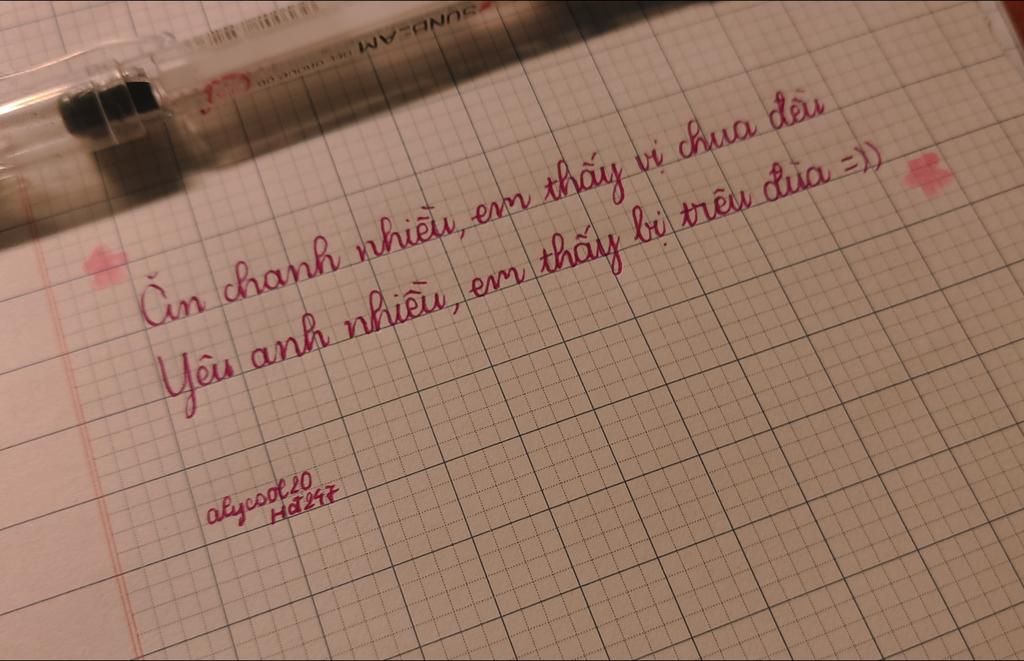 SUNBEAM
Ăn chanh nhiều, em thấy vị chua đều
Yêu anh nhiều, em thấy bị trêu đùa =))
alycool20
Hđ247